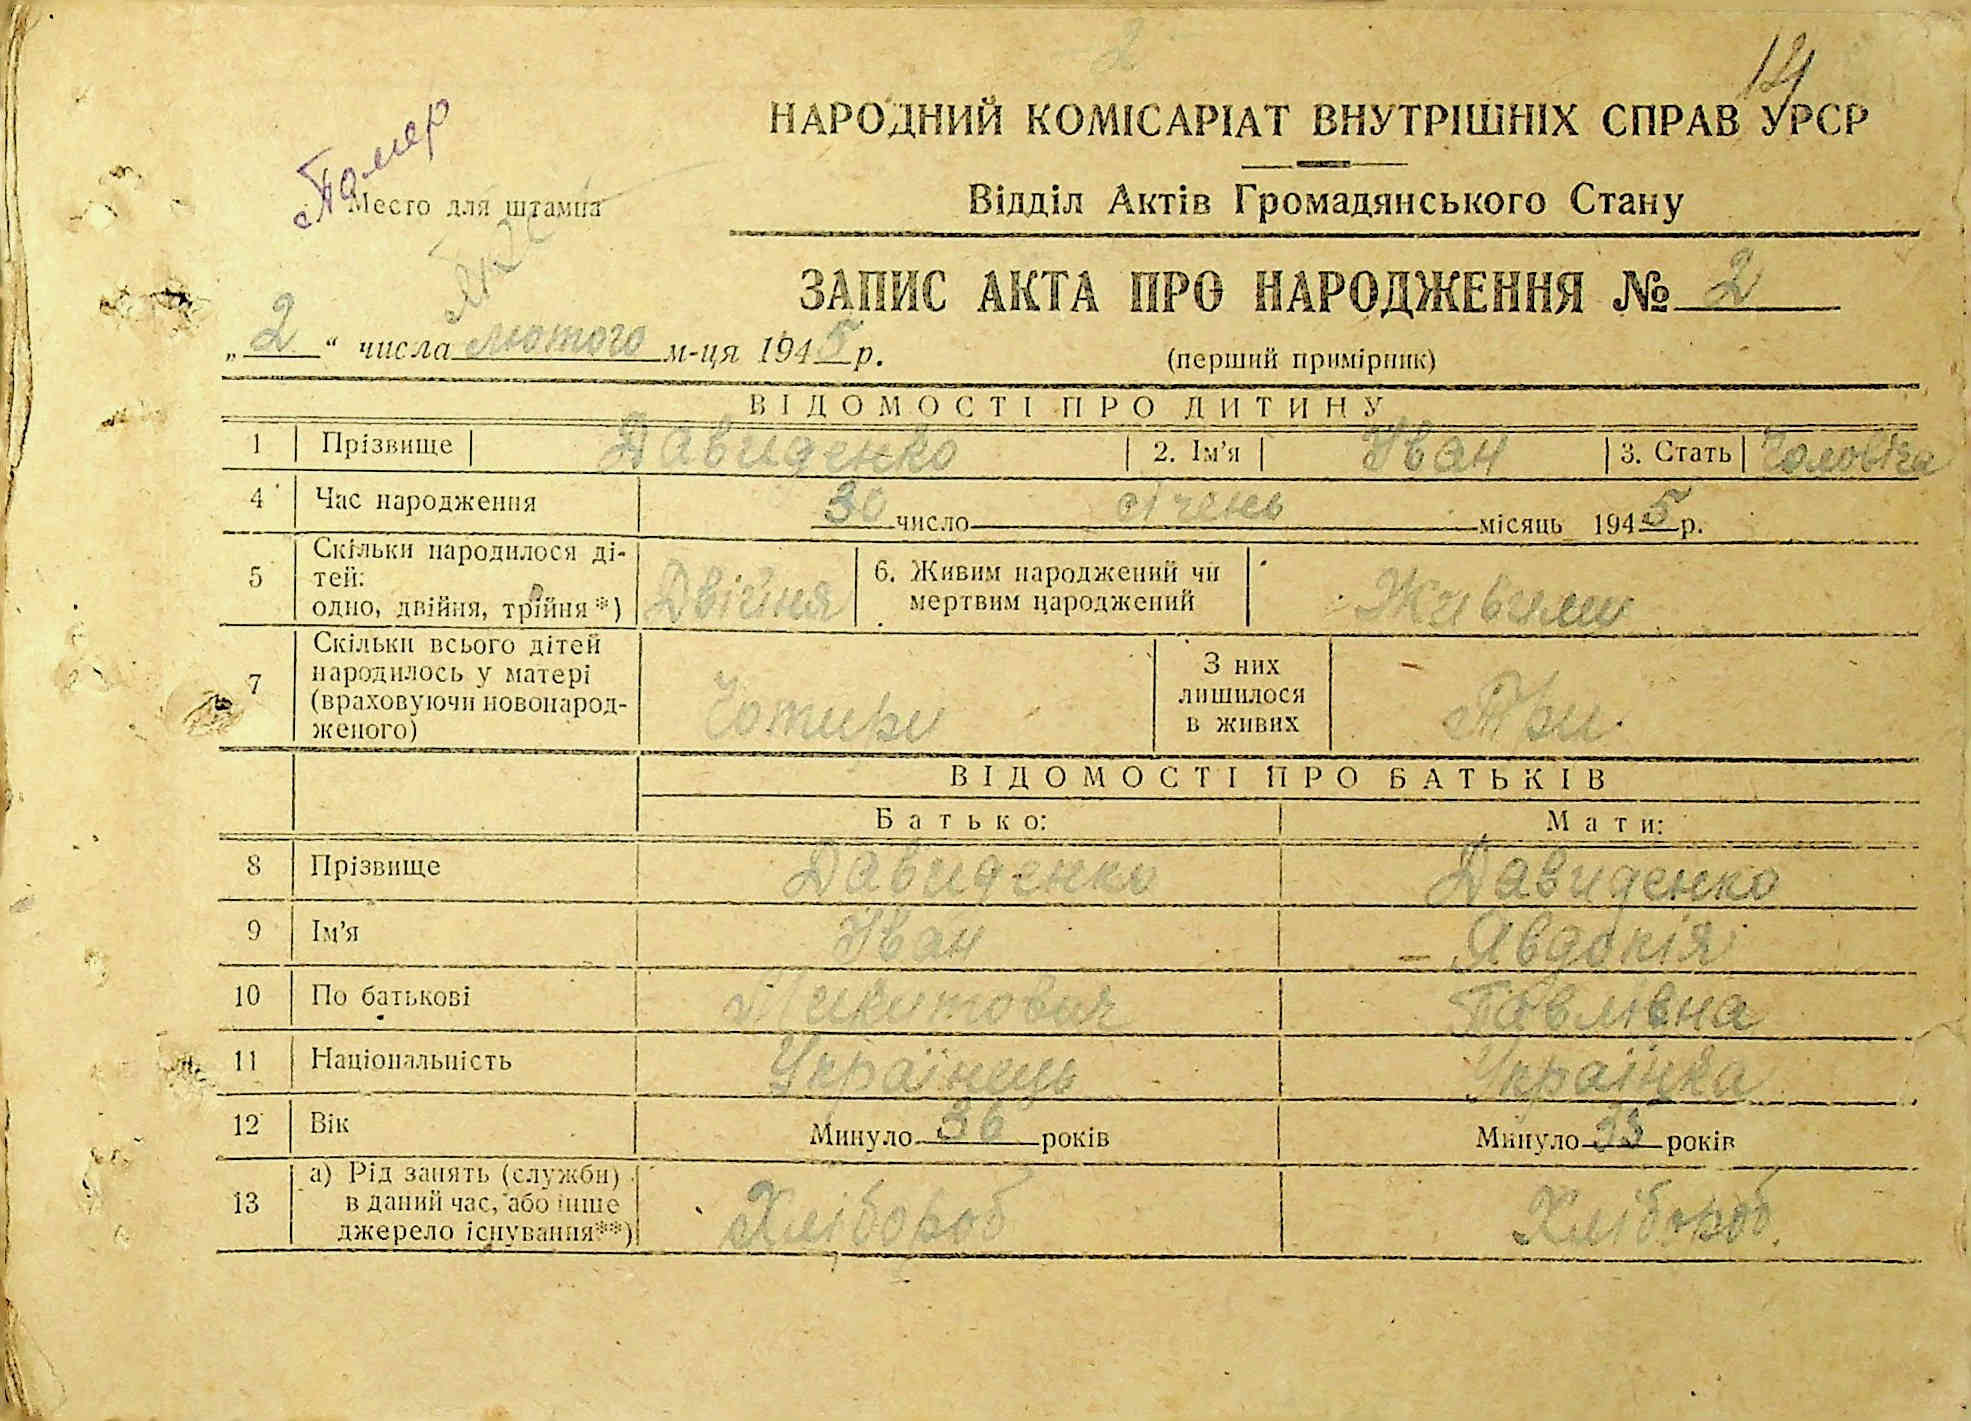 2
14
НАРОДНИЙ КОМІСАРІАТ ВНУТРІШНІХ СПРАВ УРСР
Помер
Место для штампа
Відділ Актів Громадянського Стану
ЗАПИС АКТА ПРО НАРОДЖЕННЯ № 2
„2“ числа лютого м-ця 1945 р.
(перший примірник)
ВІДОМОСТІ ПРО ДИТИНУ
1 Прізвище Давиденко 2. Ім'я Іван 3. Стать Чоловіча
4 Час народження 30 число січень місяць 1945 р.
5 Скільки народилося ді-
тей:
одно, двійня, трійня*) Двійня 6. Живим народжений чи
мертвим народжений Живими
7 Скільки всього дітей
народилось у матері
(враховуючи новонарод-
женого) Чотири З них
лишилося
в живих Три
ВІДОМОСТІ ПРО БАТЬКІВ
Батько: Мати:
8 Прізвище Давиденко Давиденко
9 Ім'я Іван Явдокія
10 По батькові Микитович Павлівна
11 Національність Українець Українка
12 Вік Минуло 36 років Минуло 33 років
13 а) Рід занять (служби)
в даний час, або інше
джерело існування**) Хлібороб Хлібороб